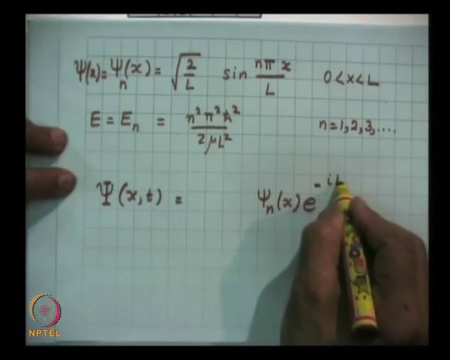 ψ(x) = ψₙ(x) = √(2/L) sin nπx/L 0<x<L
E = Eₙ = n²π²ℏ²/2μL² n=1,2,3,....
Ψ(x,t) = ψₙ(x) e^-i
NPTEL